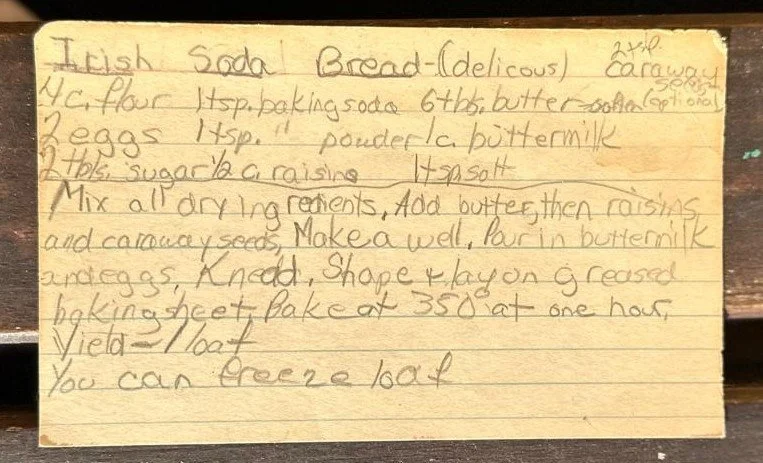 Irish Soda Bread-(delicous) 2tsp. caraway seeds (optional)
4 c. flour 1tsp. baking soda 6 tbs. butter-soften
2 eggs 1tsp. " powder 1c. buttermilk
2 tbls. sugar 1/2 c. raisins 1tsp salt
Mix all dry ingredients, Add butter, then raisins
and caraway seeds, Make a well, Pour in buttermilk
and eggs, Knedd, Shape + lay on greased
baking sheet, Bake at 350° at one hour,
Yield-1 loaf
You can freeze loaf